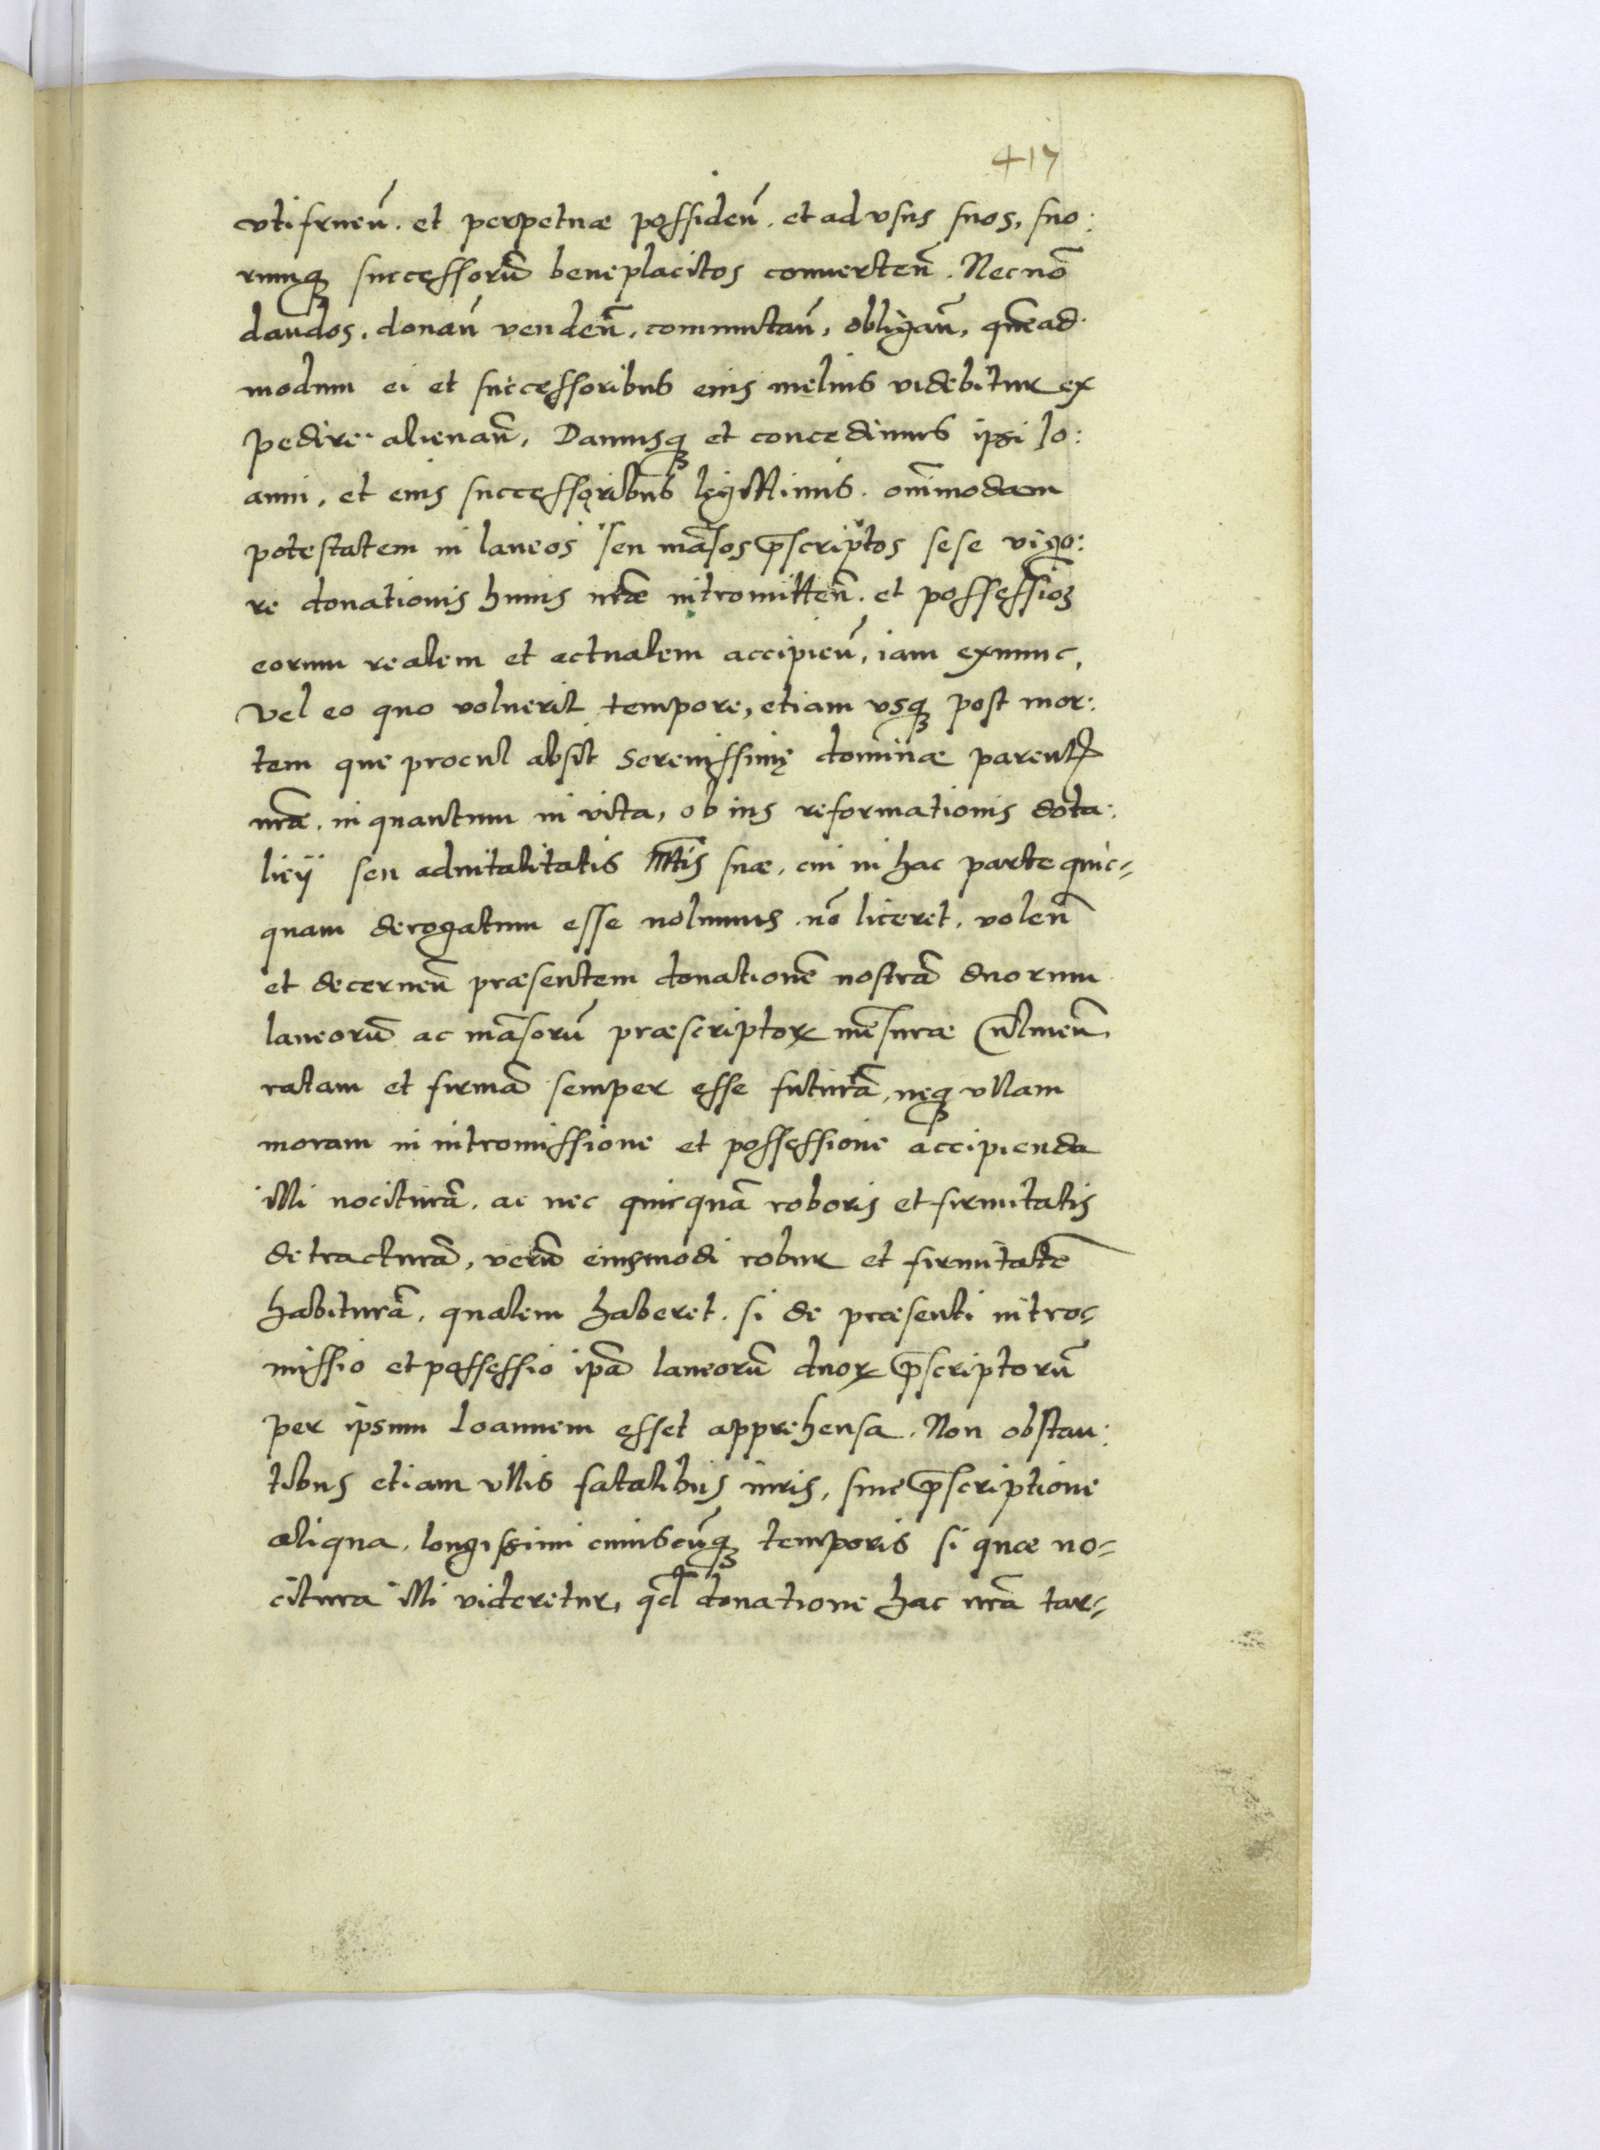 417
vtifrueñ. et perpetuæ possideñ. et ad vsus suos, suo:
rumq successorũ beneplacitos conuerteñ. Nec nõ
dandos. donañ vendeñ, commutañ, obligañ, quẽad
modum ei et successoribus eius melius videbitur ex
pedire alienañ, Damusq et concedimus ipsi Io:
anni, et eius successoribus legittimis. oĩmodam
potestatem in laneos seu mãsos p̃scriptos sese vigo:
re donationis huius nr̃æ intromitteñ. et possessioẽ
eorum realem et actualem accipieñ, iam exnunc,
Vel eo quo voluerit tempore, etiam vsq post mor:
tem que procul absit Serenissimę dominæ parentis
nr̃æ. in quantum in vita, ob ius reformationis dota:
licij seu aduitalitatis Mt̃is suæ, cui in hac parte quic-
quam derogatum esse nolumus. nõ liceret. voleñ
et decerneñ præsentem donationẽ nostrã duorum
laneorũ ac mãsorũ præscriptor mẽsuræ Culmeñ.
ratam et firmã semper esse futurã, neq vllam
moram in intromissione et possessione accipienda
illi nociturã. ac nec quicquã roboris et firmitatis
detracturã, verũ eiusmodi robur et firmitatẽ
habiturã. qualem haberet. si de præsenti intro-
missio et possessio ip̃a laneorũ duor p̃scriptorũ
per ipsum Ioannem esset apprehensa. Non obstan:
tibus etiam vllis fatalibus iuris, siue p̃scriptione
aliqua, longissimi cuiuscũq temporis si quæ no-
citura illi videretur, qd̃ donatione hac nr̃a tar-